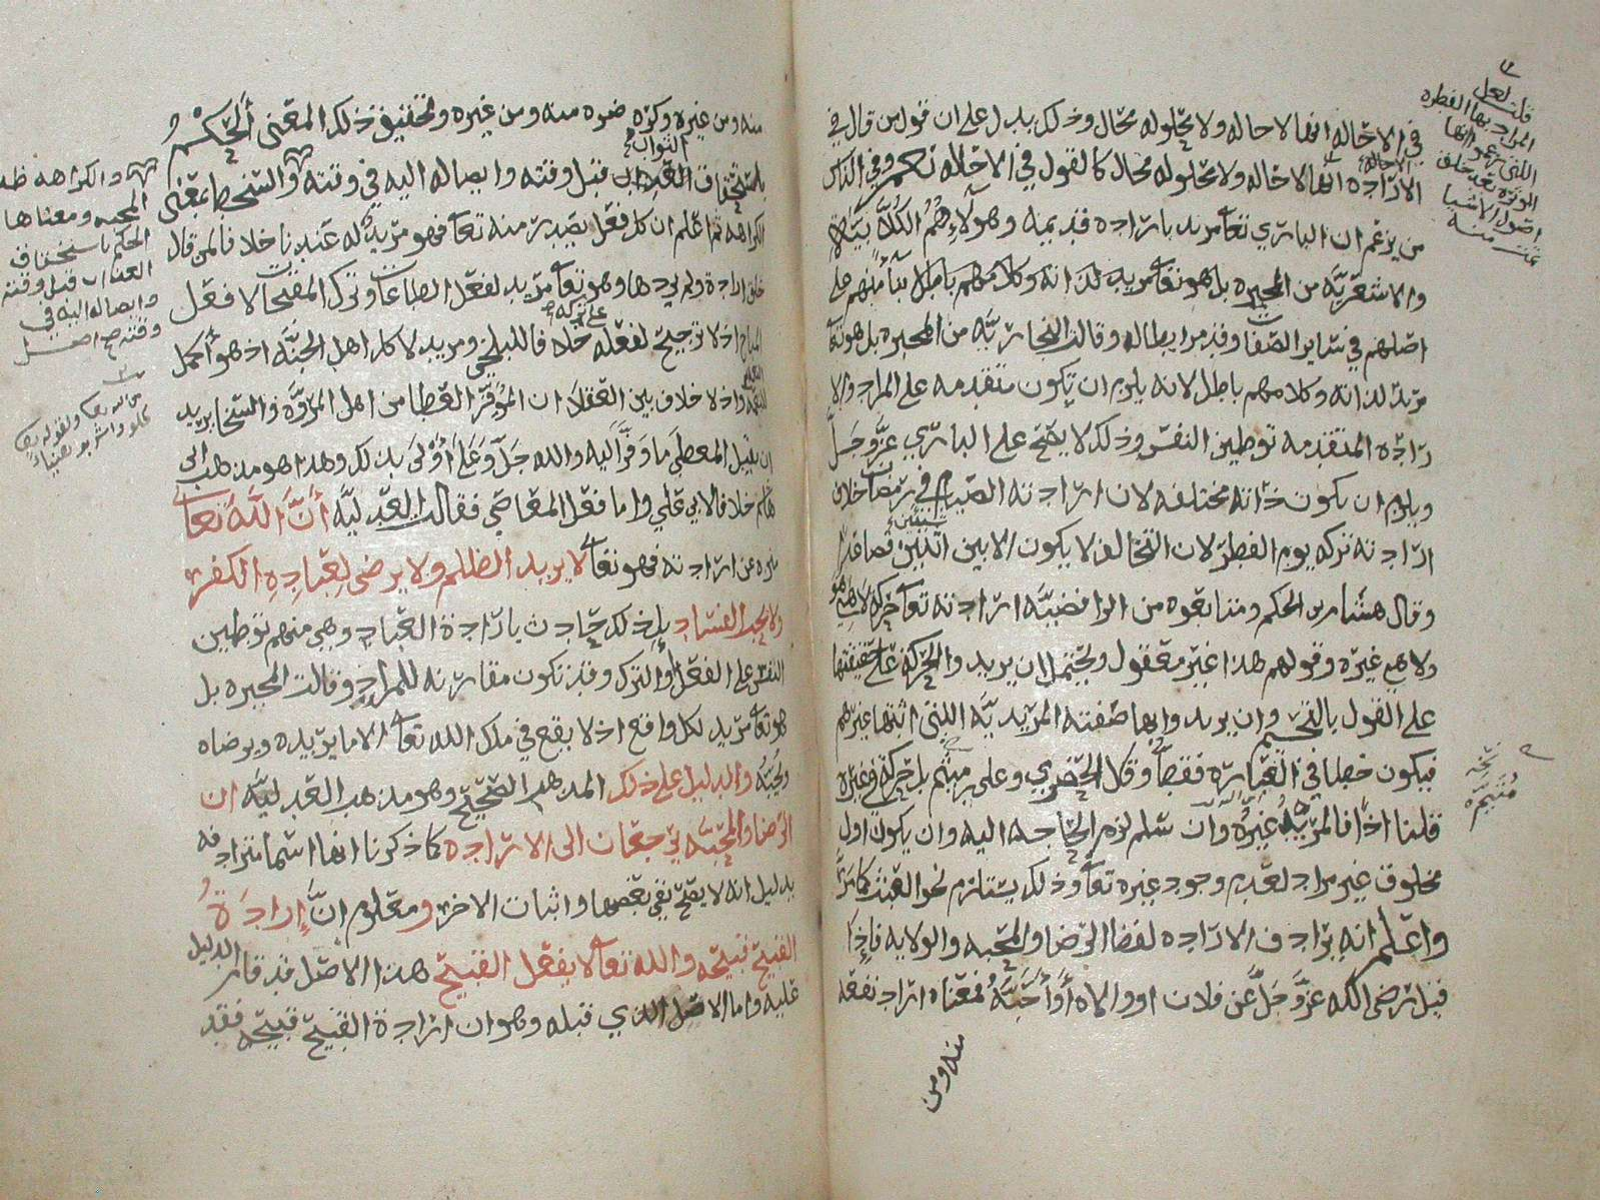 في الاحاله انها لا حاله ولا محلوله محال وذلك يدل على ان قول من قال في
الارادة انها لا حاله ولا محلوله محال كالقول في الاحاله نعم وفي الناس
من يزعم ان الباري تعا مريد بارادة قديمه وهولاء هم الكلابيه
والاشعريه من المجبره بل هو تعا مريد لذاته وكلامهم باطل بنا منهم على
اصلهم في ساير الصفات وقد مر ابطاله وقالت النجاريه من المجبره بل هو تعا
مريد لذاته وكلامهم باطل لانه يلزم ان تكون متقدمه على المراد والا
رادة المتقدمه توطين النفس وذلك لا يصح على الباري عز وجل
ويلزم ان يكون ذاته مختلفه لان ارادته الصيام في رمضان خلاف
ارادته تركه يوم الفطر لان التخالف لا يكون الا بين شيئين اثنين فصاعدا
وقال هشام بن الحكم ومتابعوه من الرافضيه ارادته تعا حركه لا هي هو
ولا هي غيره وقولهم هذا غير معقول ويحتمل ان يريد والحركة على حقيقتها
على القول بالتجسم وان يريدوا بها صفته المريديه التي اثبتها غيرهم
فيكون خطا في العباره فقط وقال الحضرمي وعلي بن ميثم بل حركة في غيره
قلنا اذا فالمريد غيره وان سلم لزم الحاجه اليه وان يكون اول
مخلوق غير مراد لعدم وجود غيره تعا وذلك يستلزم نحو العبث كما مر
واعلم انه يرادف الارادة لفظا الرضا والمحبه والولايه فاذا
قيل رضي الله عز وجل عن فلان او والاه او احبه فمعناه اراد نفعه
منه ومن
قلت لعل
المراد بها الفطره
التي يزعموا انها
الموثره بعد خلق
اصول الاشيا
تمت منه
منه ومن غيره وكره ضره منه ومن غيره وتحقيق ذلك المعنى الحكم
باستحقاق الثواب قبل وقته وايصاله اليه في وقته والسخط بمعنى
الكراهه ثم اعلم ان كل فعل يصدر منه تعا فهو مريد له عندنا خلافا لمن قال
خلق ارادة ولم يردها وهو تعا مريد لفعل الطاعات وترك المقبحات لا فعل
المباح اذ لا ترجيح لفعله على تركه خلافا للبلخي ومريد لاكل اهل الجنه اذ هو اكمل
للنعمه واذ لا خلاف بين العقلا ان الموفر العطا من اهل المروه والسخا يريد
ان يقبل المعطى ما وفر اليه والله جل وعلا اولى بذلك وهذا هو مذهب ابي
هاشم خلافا لابي علي واما فعل المعاصي فقالت العدليه ان الله تعا
منزه عن ارادته فهو تعا لا يريد الظلم ولا يرضى لعباده الكفر
ولا يحب الفساد بل ذلك حادث بارادة العباد وهي منهم توطين
النفس على الفعل او الترك وقد تكون مقارنه للمراد وقالت المجبره بل
هو تعا مريد لكل واقع اذ لا يقع في ملك الله تعا الا ما يريده ويرضاه
ويحبه والدليل على ذلك المذهب الصحيح وهو مذهب العدليه ان
الرضا والمحبه يرجعان الى الارادة كما ذكرنا انها اسما مترادفه
بدليل انه لا يصح نفي بعضها واثبات الاخر ومعلوم ان ارادة
القبيح قبيحه والله تعا لا يفعل القبيح هذا الاصل قد قام الدليل
عليه واما الاصل الذي قبله وهو ان ارادة القبيح قبيحه فقد
والكراهه ضد
المحبه ومعناها
الحكم باستحقاق
العقاب قبل وقته
وايصاله اليه في
وقته صح اصل